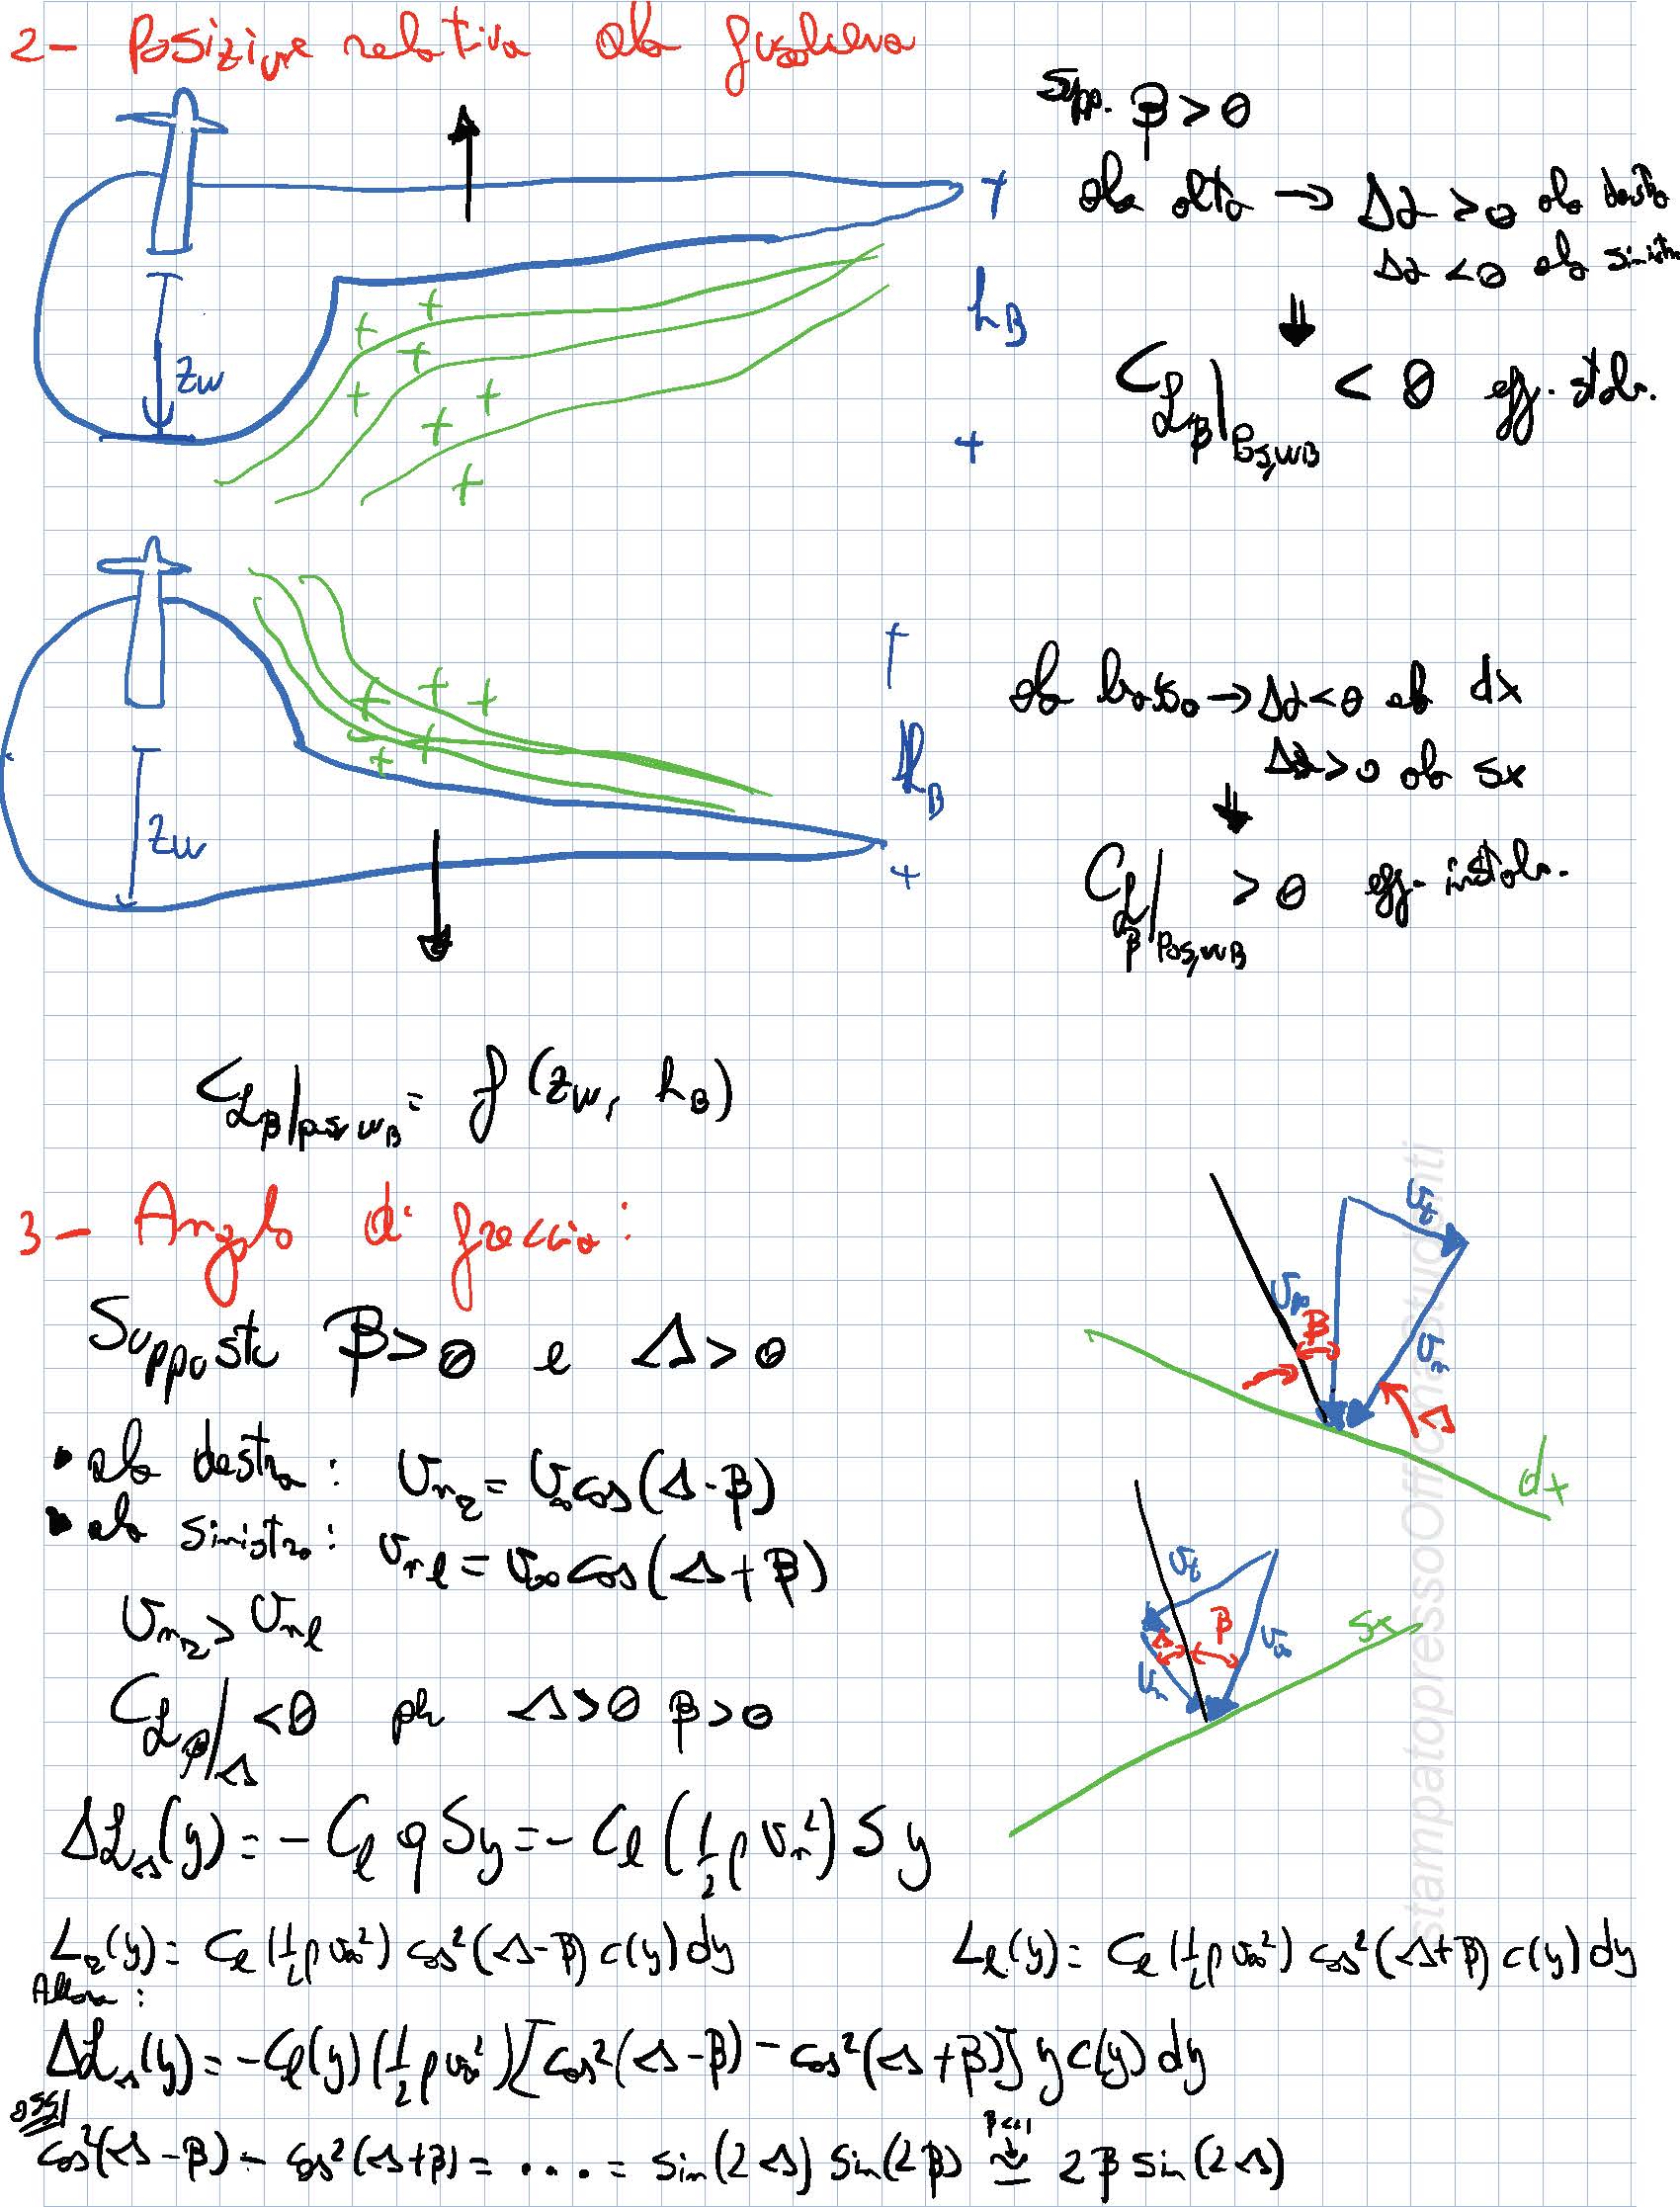 2- Posizione relativa ala fusoliera
Supp. β > 0
ala alta → Δα > 0 ala destra
Δα < 0 ala sinistra
⇓
C_ℒβ|Pos,WB < 0 eff. stab.
z_W
h_B
+ + + + + + + +
ala bassa → Δα < 0 ala dx
Δα > 0 ala sx
⇓
C_ℒβ|Pos,WB > 0 eff. instab.
z_W
h_B
+ + + + + +
C_ℒβ|pos,WB = f(z_W, h_B)
3- Angolo di freccia:
Supposto β > 0 e Λ > 0
• ala destra: V_nr = V∞ cos(Λ - β)
• ala sinistra: V_nl = V∞ cos(Λ + β)
V_nr > V_nl
C_ℒβ|Λ < 0 per Λ > 0 β > 0
V_t
V∞
β
V_n
Λ
dx
V_t
Λ
β
V∞
V_n
sx
Δℒ_Λ(y) = - C_l q S y = - C_l (1/2 ρ V_n²) S y
L_r(y) = C_l (1/2 ρ V∞²) cos²(Λ - β) c(y) dy
L_l(y) = C_l (1/2 ρ V∞²) cos²(Λ + β) c(y) dy
Allora:
Δℒ_Λ(y) = - C_l(y) (1/2 ρ V∞²) [cos²(Λ - β) - cos²(Λ + β)] y c(y) dy
oss/
cos²(Λ - β) - cos²(Λ + β) = .... = sin(2Λ) sin(2β) ≃ 2β sin(2Λ)
β<<1
stampatopressoOfficinaStudenti